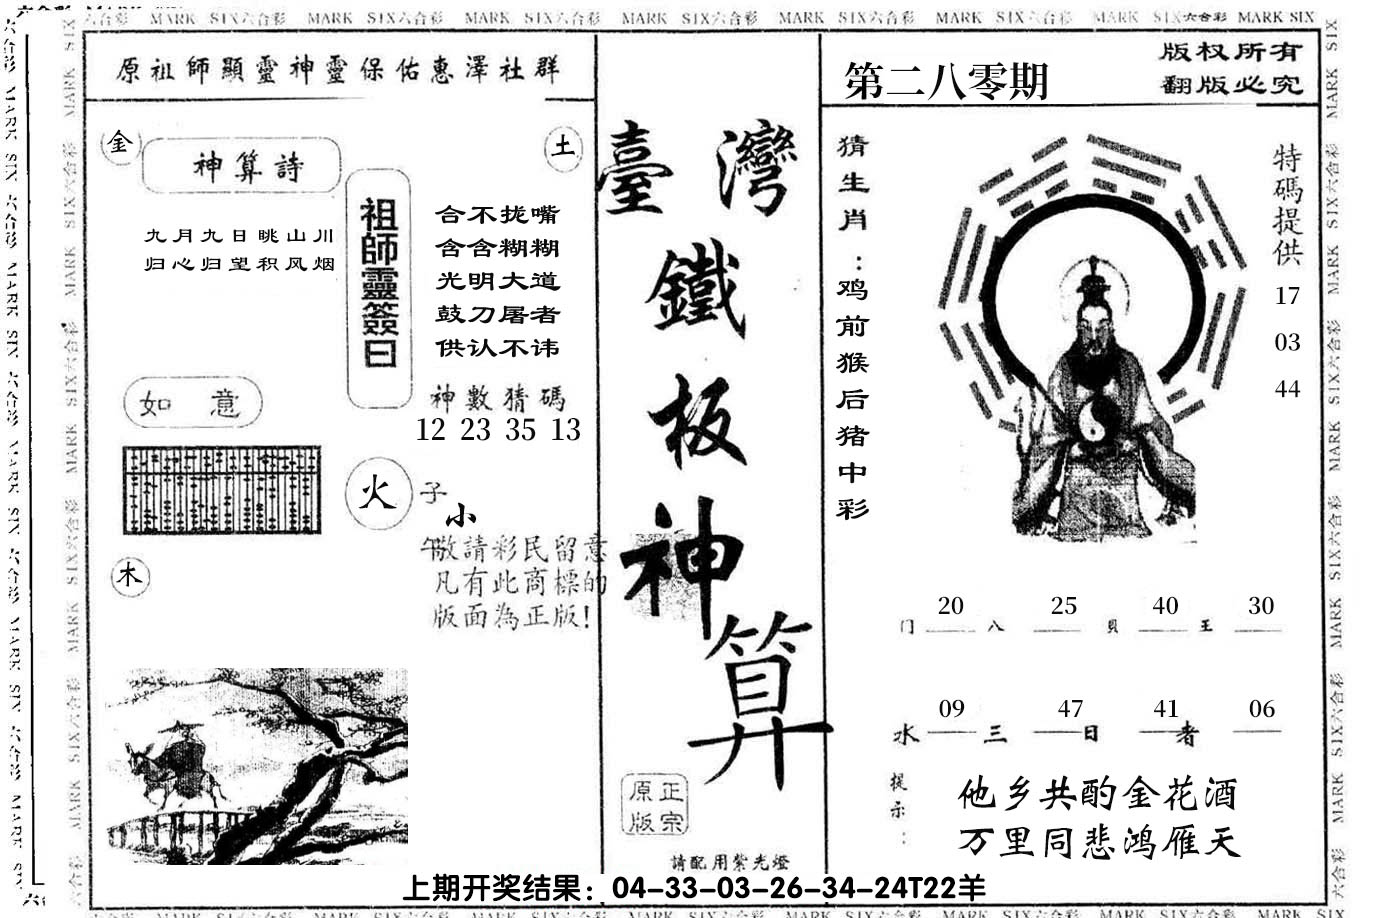 六合彩 MARK SIX六合彩 MARK SIX六合彩 MARK SIX六合彩 MARK SIX六合彩 MARK SIX六合彩 MARK SIX六合彩 MARK SIX六合彩 MARK SIX
原祖師顯靈神靈保佑惠澤社群
金
土
神算詩
九月九日眺山川
归心归望积风烟
祖師靈簽曰
合不拢嘴
含含糊糊
光明大道
鼓刀屠者
供认不讳
神數猜碼
12 23 35 13
如意
火
子
小
午
敬請彩民留意
凡有此商標的
版面為正版!
木
臺灣
鐵
板
神
算
正宗
原版
請配用紫光燈
第二八零期
版权所有
翻版必究
猜生肖：鸡前猴后猪中彩
特碼提供
17
03
44
20 25 40 30
门 八 貝 王
09 47 41 06
水 三 日 者
提示：
他乡共酌金花酒
万里同悲鸿雁天
上期开奖结果：04-33-03-26-34-24T22羊